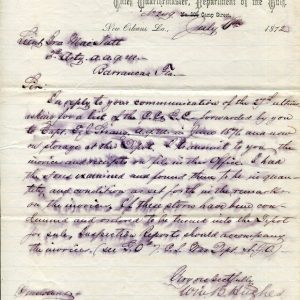 Chief Quartermaster, Department of the Gulf,
No. 205 Camp Street,
New Orleans La., July 6th 1872
Lieut. Ira MacNutt
5 Arty. a.a.q.m.
Barrancas Fla.
Sir
In reply to your communication of the 27th ultimo
asking for a list of Q. & C. forwarded by you
to Capt. a.q.m. in June 1871 and now
on storage at this Depot, I transmit to you the
invoice and receipts on file in this Office. I had
the stores examined and found them to be in quan-
tity and condition as set forth in the remarks
on the invoice. If these stores have been con-
demned and ordered to be turned into the Depot
for sale, Inspection Reports should accompany
the invoices. (see G.O.
Very respectfully
Wm B. Hughes